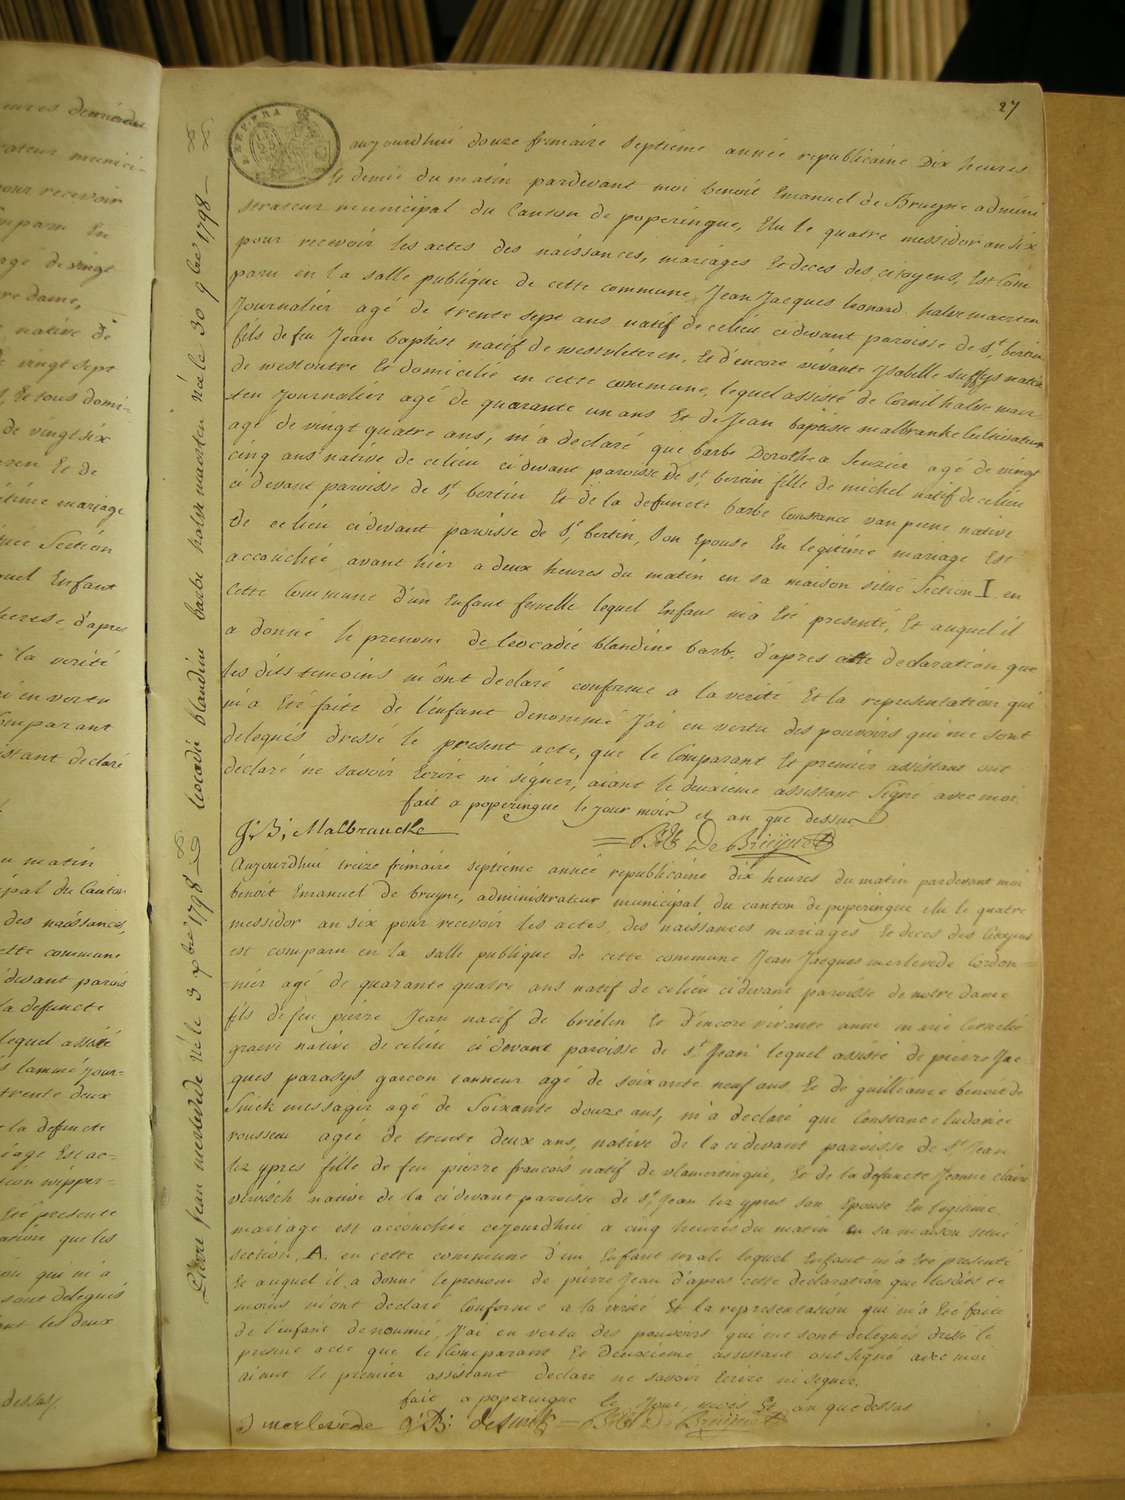 27
aujourdhui douze frimaire septieme année republicaine dix heures
et demie du matin pardevant moi benoit Emanuel de Bruyne admini
strateur municipal du Canton de poperingue, Elu le quatre messidor an six
pour recevoir les actes des naissances, mariages et deces des citoyens, Est Com
paru en la salle publique de cette commune Jean Jacques leonard halve maerten
Journalier agé de trente sept ans natif de ce lieu cidevant paroisse de St. bertin
fils de feu Jean baptiste natif de westvleteren, Et d'encore vivante Isabelle suffys native
de westoutre Et domicilié en cette commune, lequel assisté de Cornil halve maer
ten Journalier agé de quarante un ans Et de Jean baptiste malbranke Cultivateur
agé de vingt quatre ans, m'a declaré que barbe Dorothea Senzier agé de vingt
cinq ans native de ce lieu ci devant paroisse de St. bertin fille de michel natif de ce lieu
ci devant paroisse de St. bertin Et de la defuncte barbe Constance van peene native
de ce lieu ci devant paroisse de St. bertin, Son Epouse En legitime mariage Est
accouchée avant hier a deux heures du matin en sa maison situé Section I en
Cette Commune d'un Enfant femelle lequel Enfant m'a Eté presenté, Et auquel il
a donné le prenom de leocadie blandine barbe, d'apres cette declaration que
les dits temoins m'ont declaré conforme a la verité Et la representation qui
m'a Eté faite de l'enfant denommé J'ai en vertu des pouvoirs qui me sont
delegués dressé le present acte, que le Comparant Et premier assistant ont
declaré ne savoir Ecrire ni signer, aiant le deuxieme assistant Signé avec moi
fait a poperingue le jour mois et an que dessus
J: B: Malbrancke BE De Bruyne
Aujourdhui treize frimaire septieme année republicaine dix heures du matin pardevant moi
benoit Emanuel de bruyne, administrateur municipal du canton de poperingue elu le quatre
messidor an six pour recevoir les actes des naissances mariages Et deces des Citoyens
est comparu en la salle publique de cette commune Jean Jacques merlevede Cordon=
=nier agé de quarante quatre ans natif de ce lieu cidevant paroisse de notre dame
fils de feu pierre Jean natif de brielen Et d'encore vivante anne marie Cornelie
graeve native de ce lieu ci devant paroisse de St. Jean lequel assisté de pierre Jac
ques parasys garcon tanneur agé de soixante neuf ans Et de guilleaume benoit de
Smick messagir agé de Soixante douze ans, m'a declaré que Constance ludovice
rousseu agée de trente deux ans, native de la cidevant paroisse de St. Jean
lez ypres fille de feu pierre francois natif de vlamertingue, Et de la defuncte Jeanne claire
verwisch native de la cidevant paroisse de St. Jean lez ypres son Epouse En legitime
mariage est accouchée cejourdhui a cinq heures du matin en sa maison situé
section A. en cette commune d'un Enfant male lequel Enfant m'a Eté presenté
Et auquel il a donné le prenom de pierre Jean d'apres cette declaration que lesdits te
moins m'ont declaré Conforme a la verité Et la representation qui m'a Eté faite
de l'enfant denommé, J'ai en vertu des pouvoirs qui me sont delegués dressé le
present acte que le Comparant Et deuxieme assistant ont signé avec moi
aiant le premier assistant declaré ne savoir Ecrire ni signer.
fait a poperingue le Jour, mois Et an que dessus
J merlevede BE De Bruyne
leocadie blandine barbe halve maerten née le 30 9bre 1798
Pierre Jean merlevede né le 3 Xbre 1798